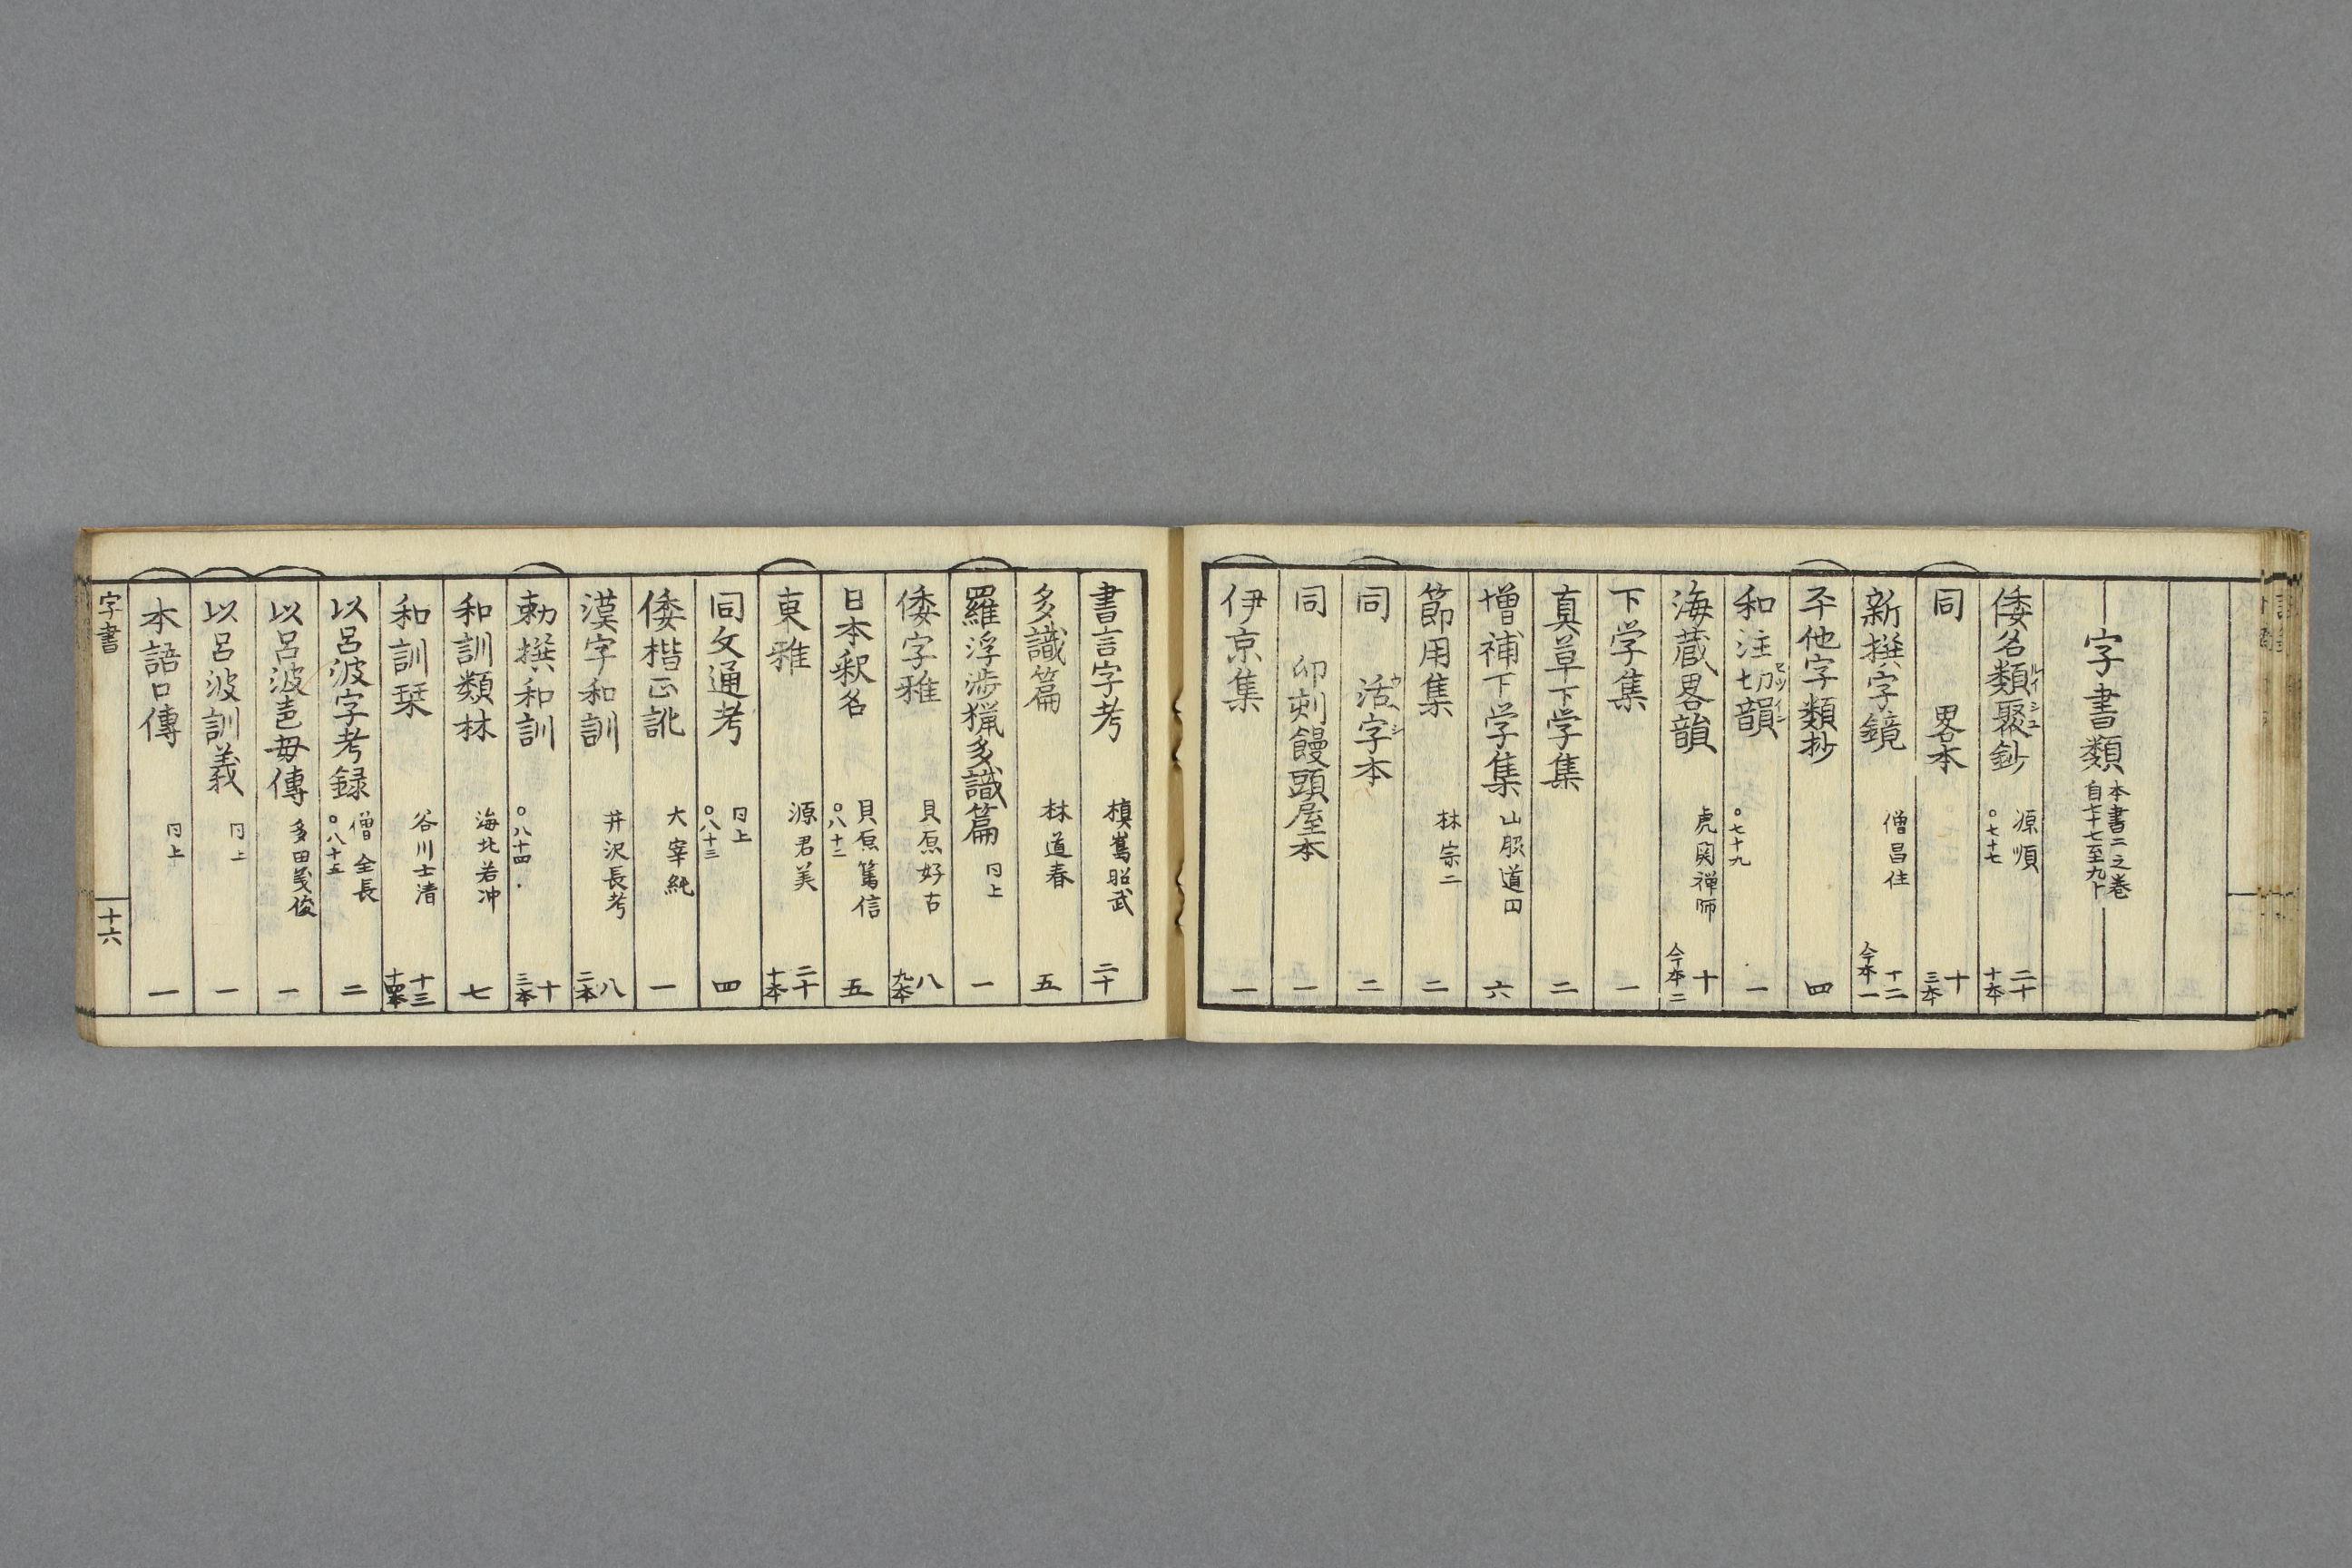 字書類 本書三之巻 自七十七至九十
倭名類聚鈔 ルイシユ 源順 ○七十七 二十 十本
同 畧本 十 三本
新撰字鏡 僧昌住 十二 今本一
平他字類抄 四
和注切韻 セツイン ○七十九 一
海蔵畧韻 虎関禅師 十 今本二
下学集 一
真草下学集 二
増補下学集 山脇道円 六
節用集 林宗二 二
同 活字本 二
同 印刻饅頭屋本 一
伊京集 一
書言字考 槙嶌昭武 二十
多識篇 林道春 五
羅浮渉猟多識篇 同上 一
倭字雅 貝原好古 八 九本
日本釈名 貝原篤信 ○八十二 五
東雅 源君美 二十 十本
同文通考 同上 ○八十三 四
倭楷正訛 大宰純 一
漢字和訓 井沢長考 八 二本
勅撰和訓 ○八十四 十 三本
和訓類林 海北若冲 七
和訓栞 谷川士清 十三 十四本
以呂波字考録 僧全長 ○八十五 二
以呂波声母傳 多田義俊 一
以呂波訓義 同上 一
本語口傳 同上 一
字書
十六